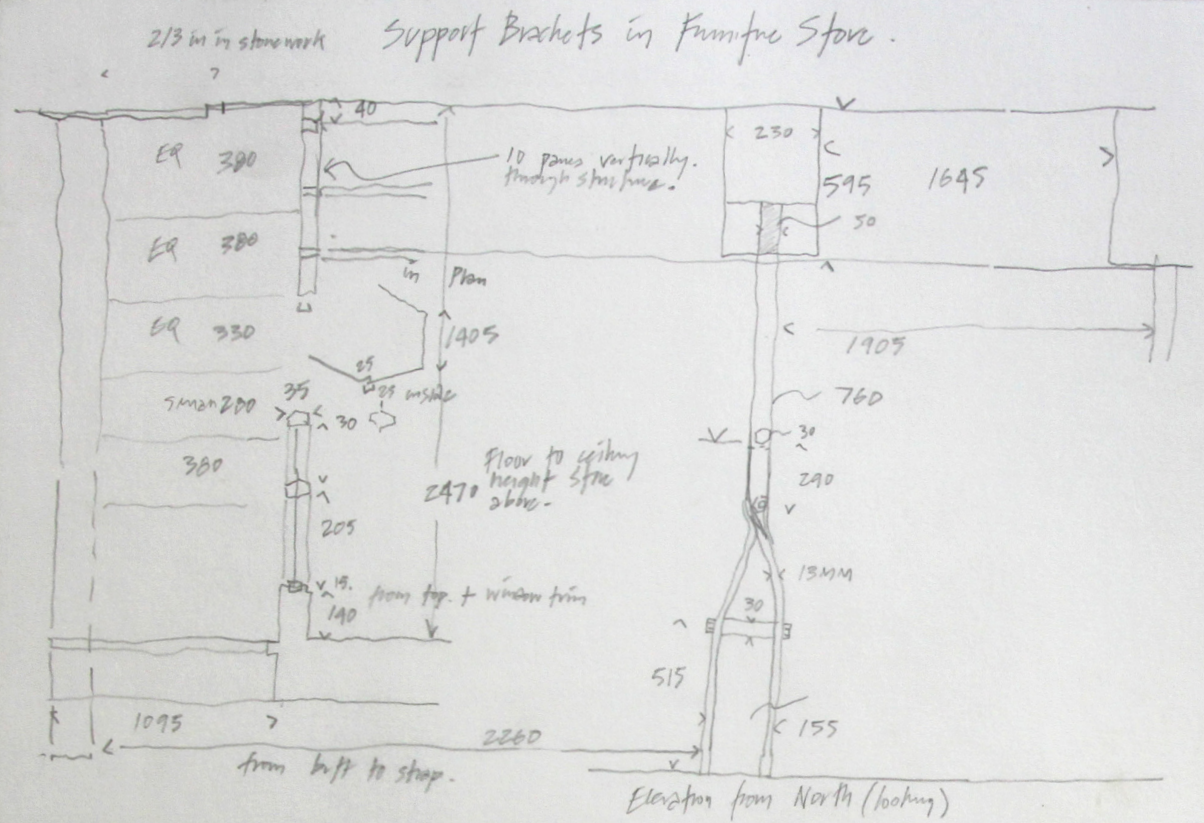 2/3 in in stonework
Support Brackets in Furniture Store.
40
EQ 380
10 panes vertically.
through structure.
230
595
1645
50
EQ 380
in Plan
EQ 330
1405
1905
25
25 inside
35
30
280
760
30
380
Floor to ceiling
height store
above.
2470
290
205
15.
from top. + window trim
140
13MM
30
515
155
1095
2260
from butt to strap.
Elevation from North (looking)